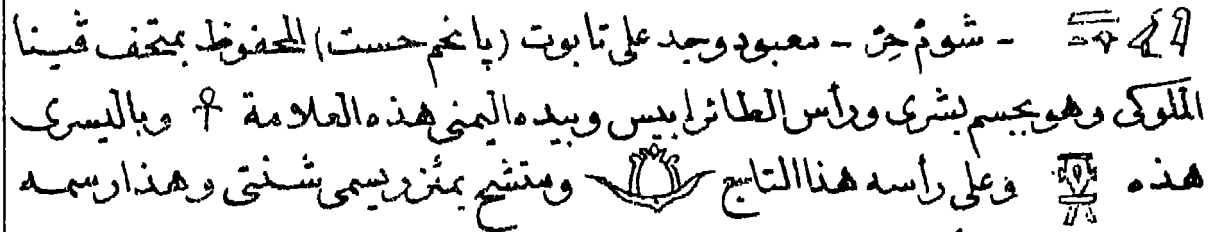 - شومْ حِرْ - معبود وجد على تابوت (پانخم حست) المحفوظ بمتحف ڤينا
الملوكى وهو بجسم بشرى ورأس الطائر ابيس وبيده اليمنى هذه العلامة ☥ وباليسرى
هذه وعلى رأسه هذا التاج ومتشح بمئزر يسمى شنتى وهذا رسمه